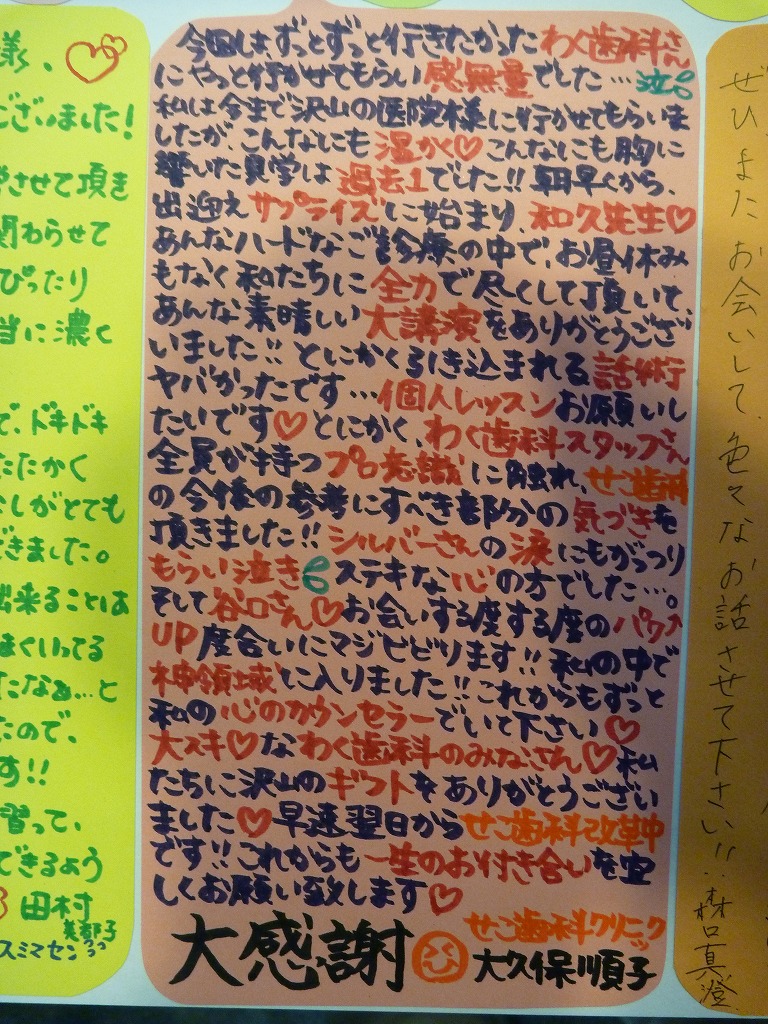 様、♡
ございました！
させて頂き
関わらせて
ぴったり
当に濃く
で、ドキドキ
たたかく
しがとても
できました。
出来ることは
まくいってる
たなぁ…と
たので、
す!!
習って、
できるよう
田村
美都子
スミマセン
今回はずっとずっと行きたかったわく歯科さん
にやっと行かせてもらい感無量でした…泣
私は今まで沢山の医院様に行かせてもらいま
したが、こんなにも温かく♡こんなにも胸に
響いた見学は過去1でした!!朝早くから、
出迎えサプライズに始まり、和久先生♡
あんなハードなご診療の中で、お昼休み
もなく私たちに全力で尽くして頂いて、
あんな素晴しい大講演をありがとうござ
いました!!とにかく引き込まれる話術
ヤバかったです…個人レッスンお願いし
たいです♡とにかく、わく歯科スタッフさん
全員が持つプロ意識に触れ、せこ歯科
の今後の参考にすべき部分の気づきを
頂きました!!シルバーさんの涙にもがっつり
もらい泣きステキな心の方でした…。
そして谷口さん♡お会いする度する度のパワー
UP度合いにマジビビります!!私の中で
神領域に入りました!!これからもずっと
私の心のカウンセラーでいて下さい♡
大スキ♡なわく歯科のみなさん♡私
たちに沢山のギフトをありがとうござい
ました♡早速翌日からせこ歯科改革中
です!!これからも一生のお付き合いを宜
しくお願い致します♡
大感謝
せこ歯科クリニック
大久保順子
ぜひまたお会いして、色々なお話させて下さい!!
真澄